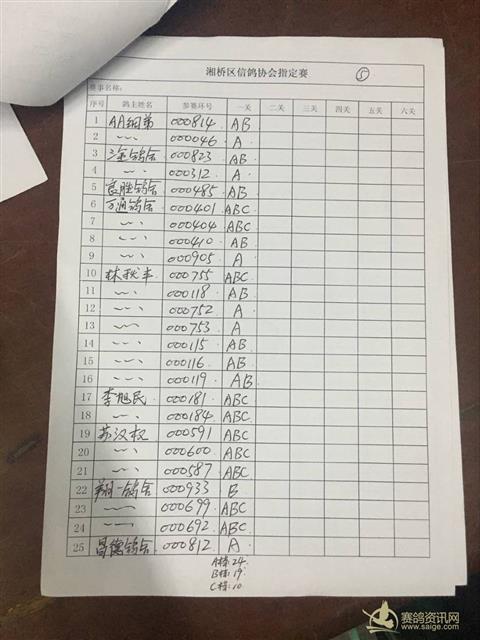 湘桥区信鸽协会指定赛 ⑤
赛事名称:
序号 鸽主姓名 参赛环号 一关 二关 三关 四关 五关 六关
1 AA钢弟 000814 AB
2 〃 000046 A
3 000823 AB
4 〃 000312 A
5 富胜鸽舍 000485 AB
6 万通鸽舍 000401 ABC
7 〃 000404 ABC
8 〃 000410 AB
9 〃 000905 A
10 林秋丰 000755 ABC
11 〃 000118 AB
12 〃 000752 A
13 〃 000753 A
14 〃 000115 AB
15 〃 000116 AB
16 〃 000119 AB
17 李旭民 000181 ABC
18 〃 000184 ABC
19 苏汉权 000591 ABC
20 〃 000600 ABC
21 〃 000587 ABC
22 翔一鸽舍 000933 B
23 〃 000699 ABC
24 〃 000692 ABC
25 昌德鸽舍 000812 A
A栋: 24
B栋: 19
C栋: 10
赛鸽资讯网
www.saige.com